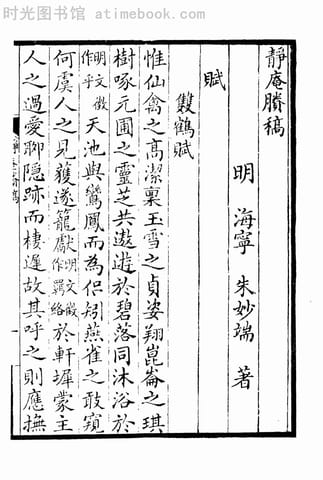 时光图书馆 - atimebook.com
靜庵賸稿
明 海寧 朱妙端 著
賦
雙鶴賦
惟仙禽之高潔稟玉雪之貞姿翔崑崙之琪
樹啄元圃之靈芝共遨遊於碧落同沐浴於
明文徵作乎天池與鸞鳳而為侶矧燕雀之敢窺
何虞人之見獲遂籠獻明文徵作羈絡於軒墀蒙主
人之過愛聊隱跡而棲遲故其呼之則應撫
时光图书馆 - www.atimebook.com